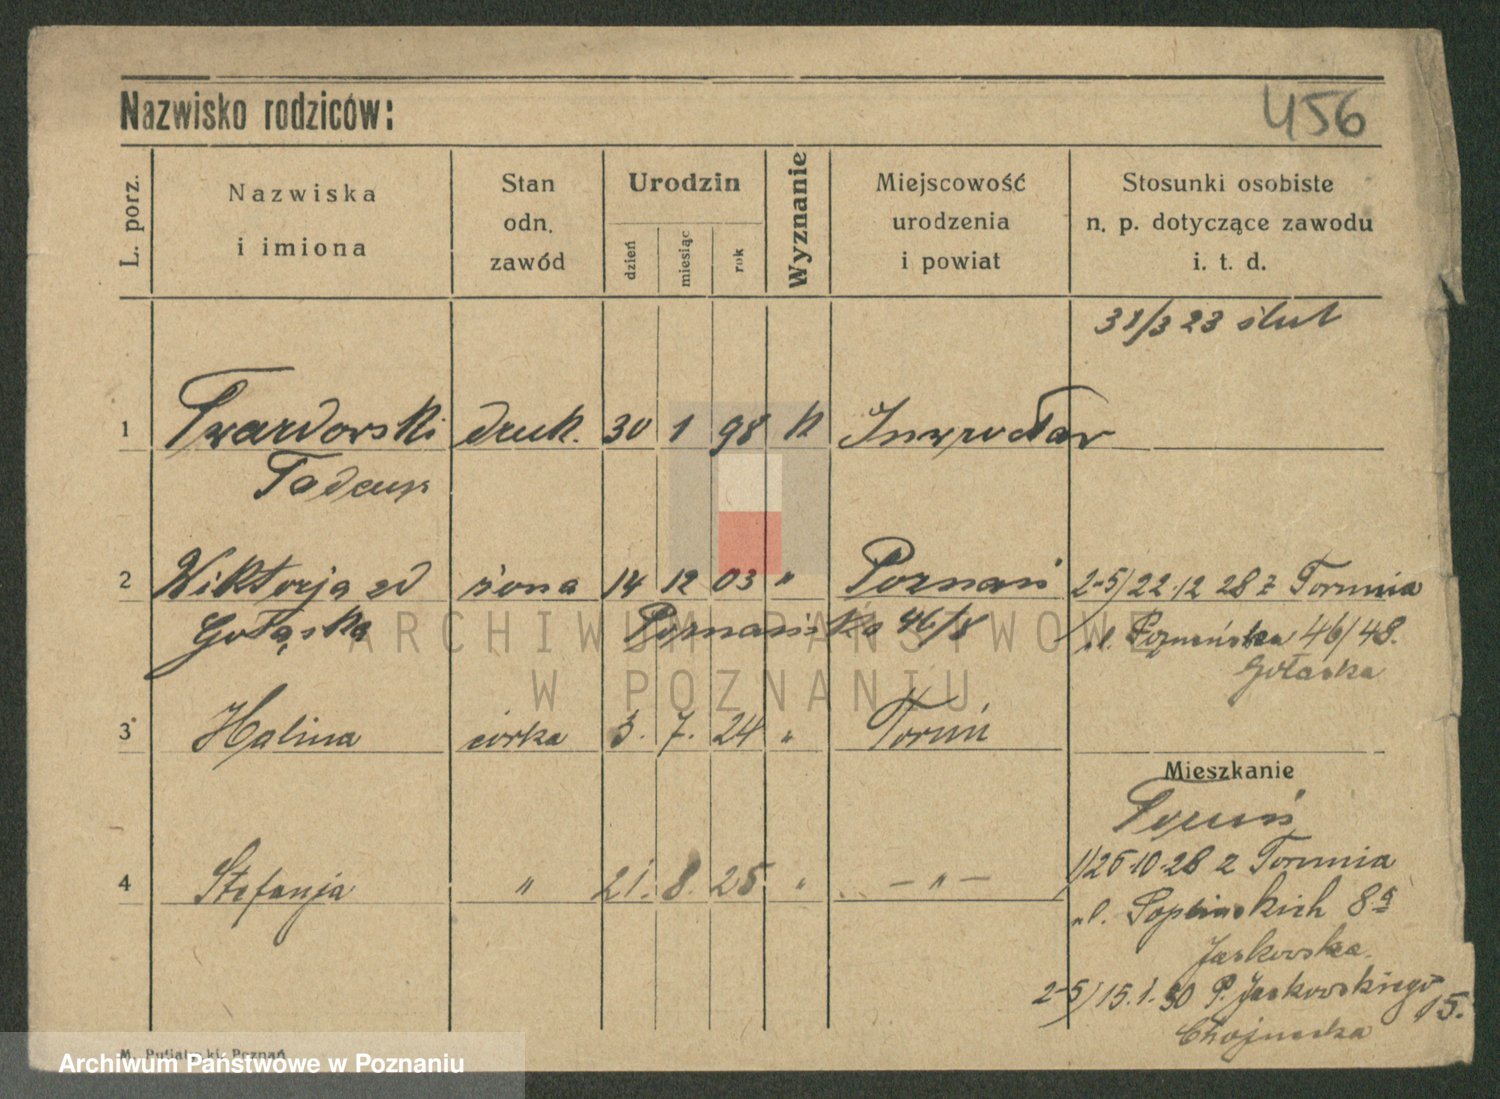 Nazwisko rodziców:
456
L. porz.
Nazwiska
i imiona
Stan
odn.
zawód
Urodzin
dzień
miesiąc
rok
Wyznanie
Miejscowość
urodzenia
i powiat
Stosunki osobiste
n. p. dotyczące zawodu
i. t. d.
31/3 23 ślub
1 Twardowski druk. 30 1 98 k Inowrocław
Tadeusz
2 Wiktorja zd żona 14 12 03 " Poznań 2-5/22.12 28 z Torunia
Gołąska Poznańska 46/8 ul. Poznańska 46/48.
Gołaska
3 Halina córka 3. 7. 24 " Toruń
Mieszkanie
Toruń
1/25.10.28 z Torunia
4 Stefanja " 21. 8. 25 " – " –
ul. Soplińskich 8a
Jaskowska.
2-5/15.1.30 P. Jaskowskiego 15.
Chojnacka
M. Putiatycki, Poznań
ARCHIWUM PAŃSTWOWE
W POZNANIU
Archiwum Państwowe w Poznaniu